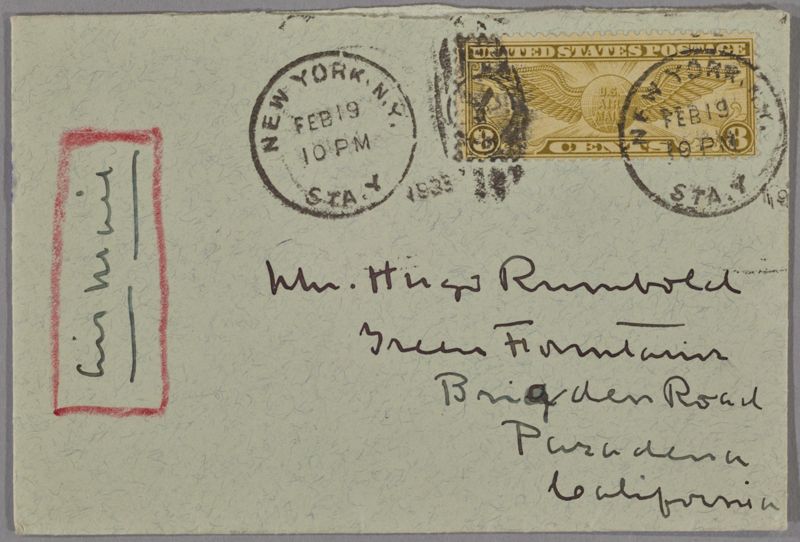 NEW YORK, N.Y.
FEB 19
10 PM
STA. Y
1935
UNITED STATES POSTAGE
U.S.
AIR
MAIL
8 CENTS 8
NEW YORK, N.Y.
FEB 19
10 PM
STA. Y
19
Air Mail
Mr. Hugo Rumbold
Green Fountains
Brigden Road
Pasadena
California